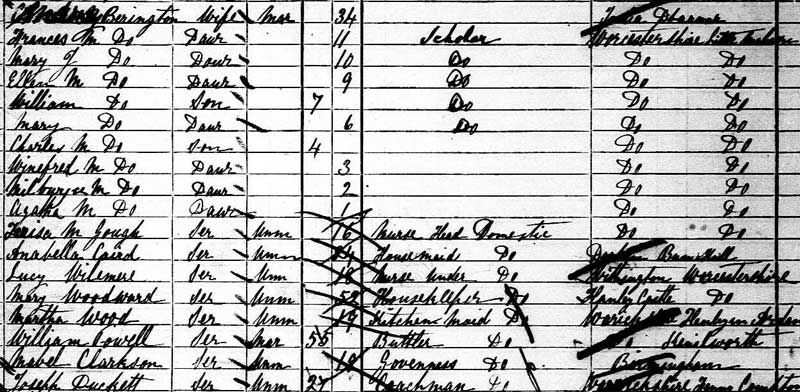 Berington Wife Mar 34 India
Frances M Do Daur 11 Scholar Worcestershire Little Malvern
Mary J Do Daur 10 Do Do Do
Ellen M Do Daur 9 Do Do Do
William Do Son 7 Do Do Do
Mary Do Daur 6 Do Do Do
Charles M Do Son 4 Do Do
Winefred M Do Daur 3 Do Do
Milburgæ M Do Daur 2 Do Do
Agatha M Do Daur 1 Do Do
Teresa M Gough Ser Unm 16 Nurse Head Domestic Do Do
Annabella Caird Ser Unm House maid Do
Lucy Wilemere Ser Unm 18 Nurse Under Do Worcestershire
Mary Woodward Ser Unm 52 Housekeeper Do Hanley Castle Do
Martha Wood Ser Unm 19 Kitchen Maid Do Henley in Arden
William Powell Ser Mar 55 Buttler Do Kenelworth
Mabel Clarkson Ser Unm 19 Governess Do Birmingham
Joseph Duckett Ser Unm 27 Coachman Do